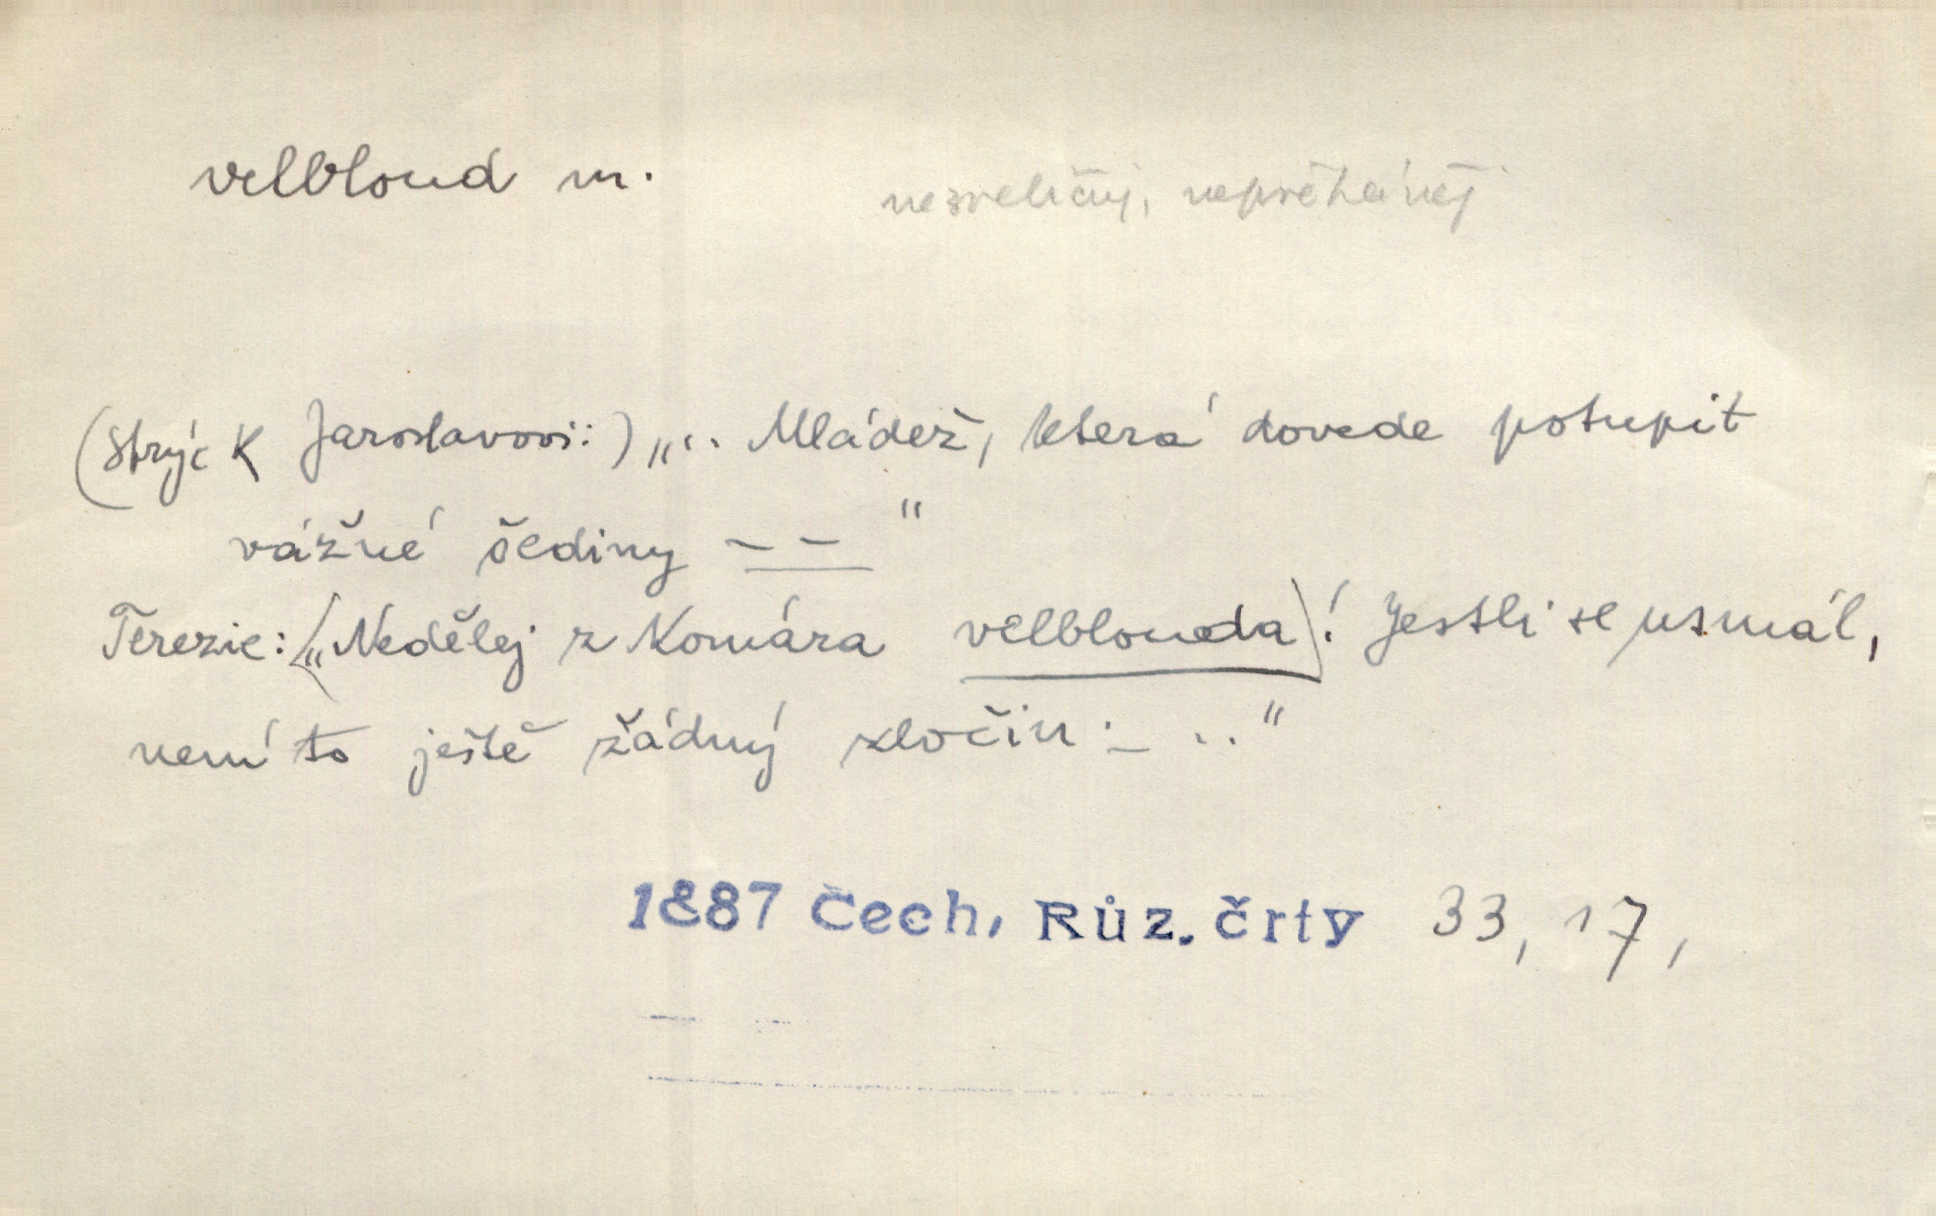 velbloud m.
nezveličuj, nepřeháněj
(Strýc K Jaroslavovi:) „... Mládež, která dovede potupit
vážné šediny — — "
Terezie: („Nedělej z Komára velblouda)! Jestli se usmál,
není to ještě žádný zločin. — .. "
1887 Čech, Růz. črty 33, 17,